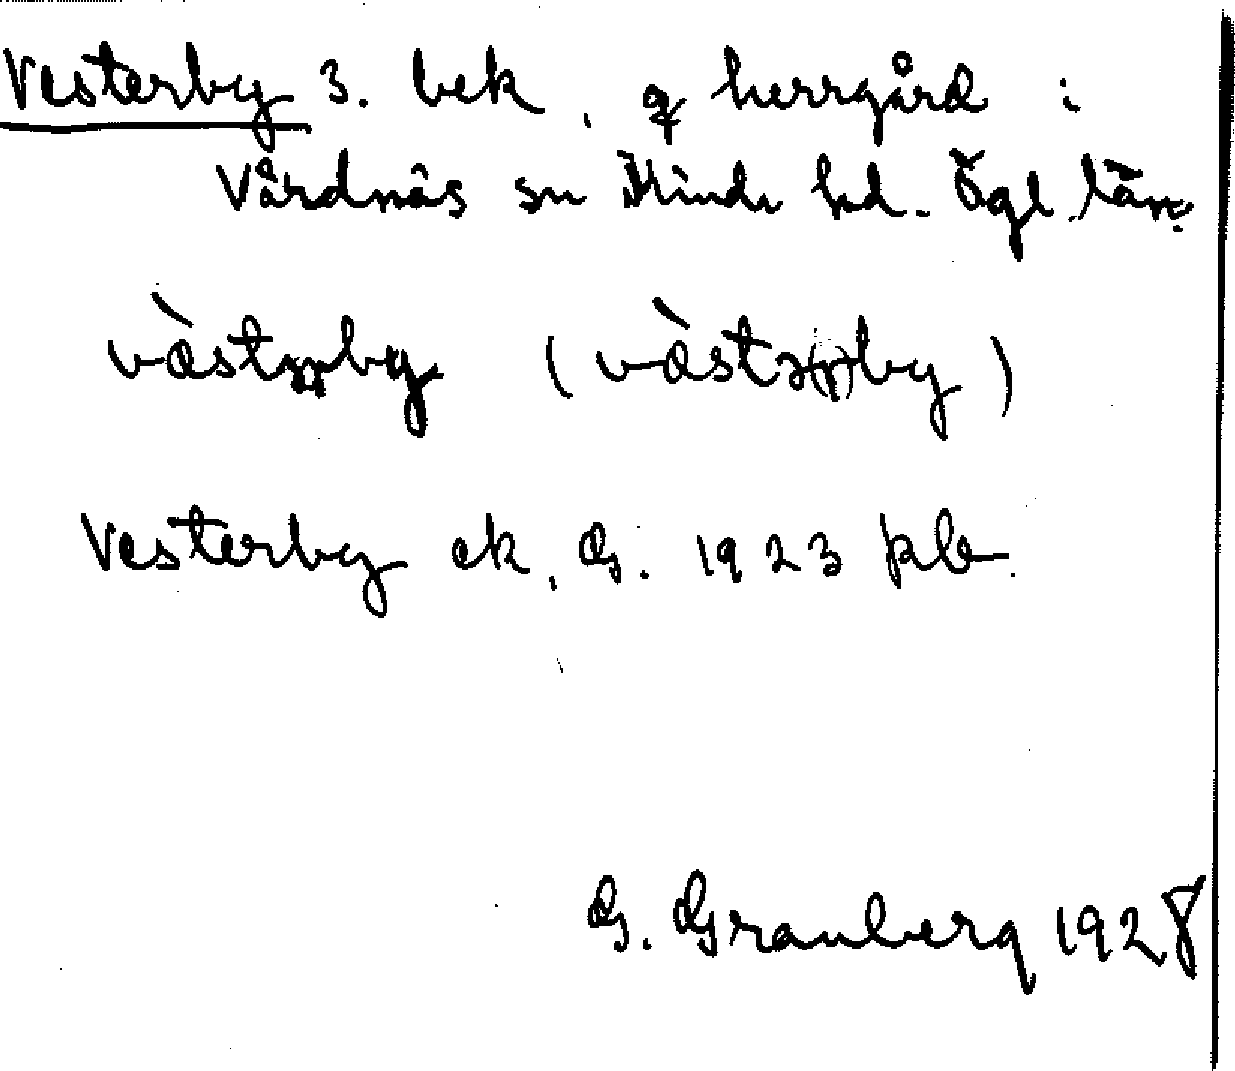 Vesterby 3. bek, herrgård i
Vårdnäs sn Kinds hd. Ögl. län.
västrby (västə(r)by)
Vesterby ek, G. 1923 pb.
G. Granberg 1928